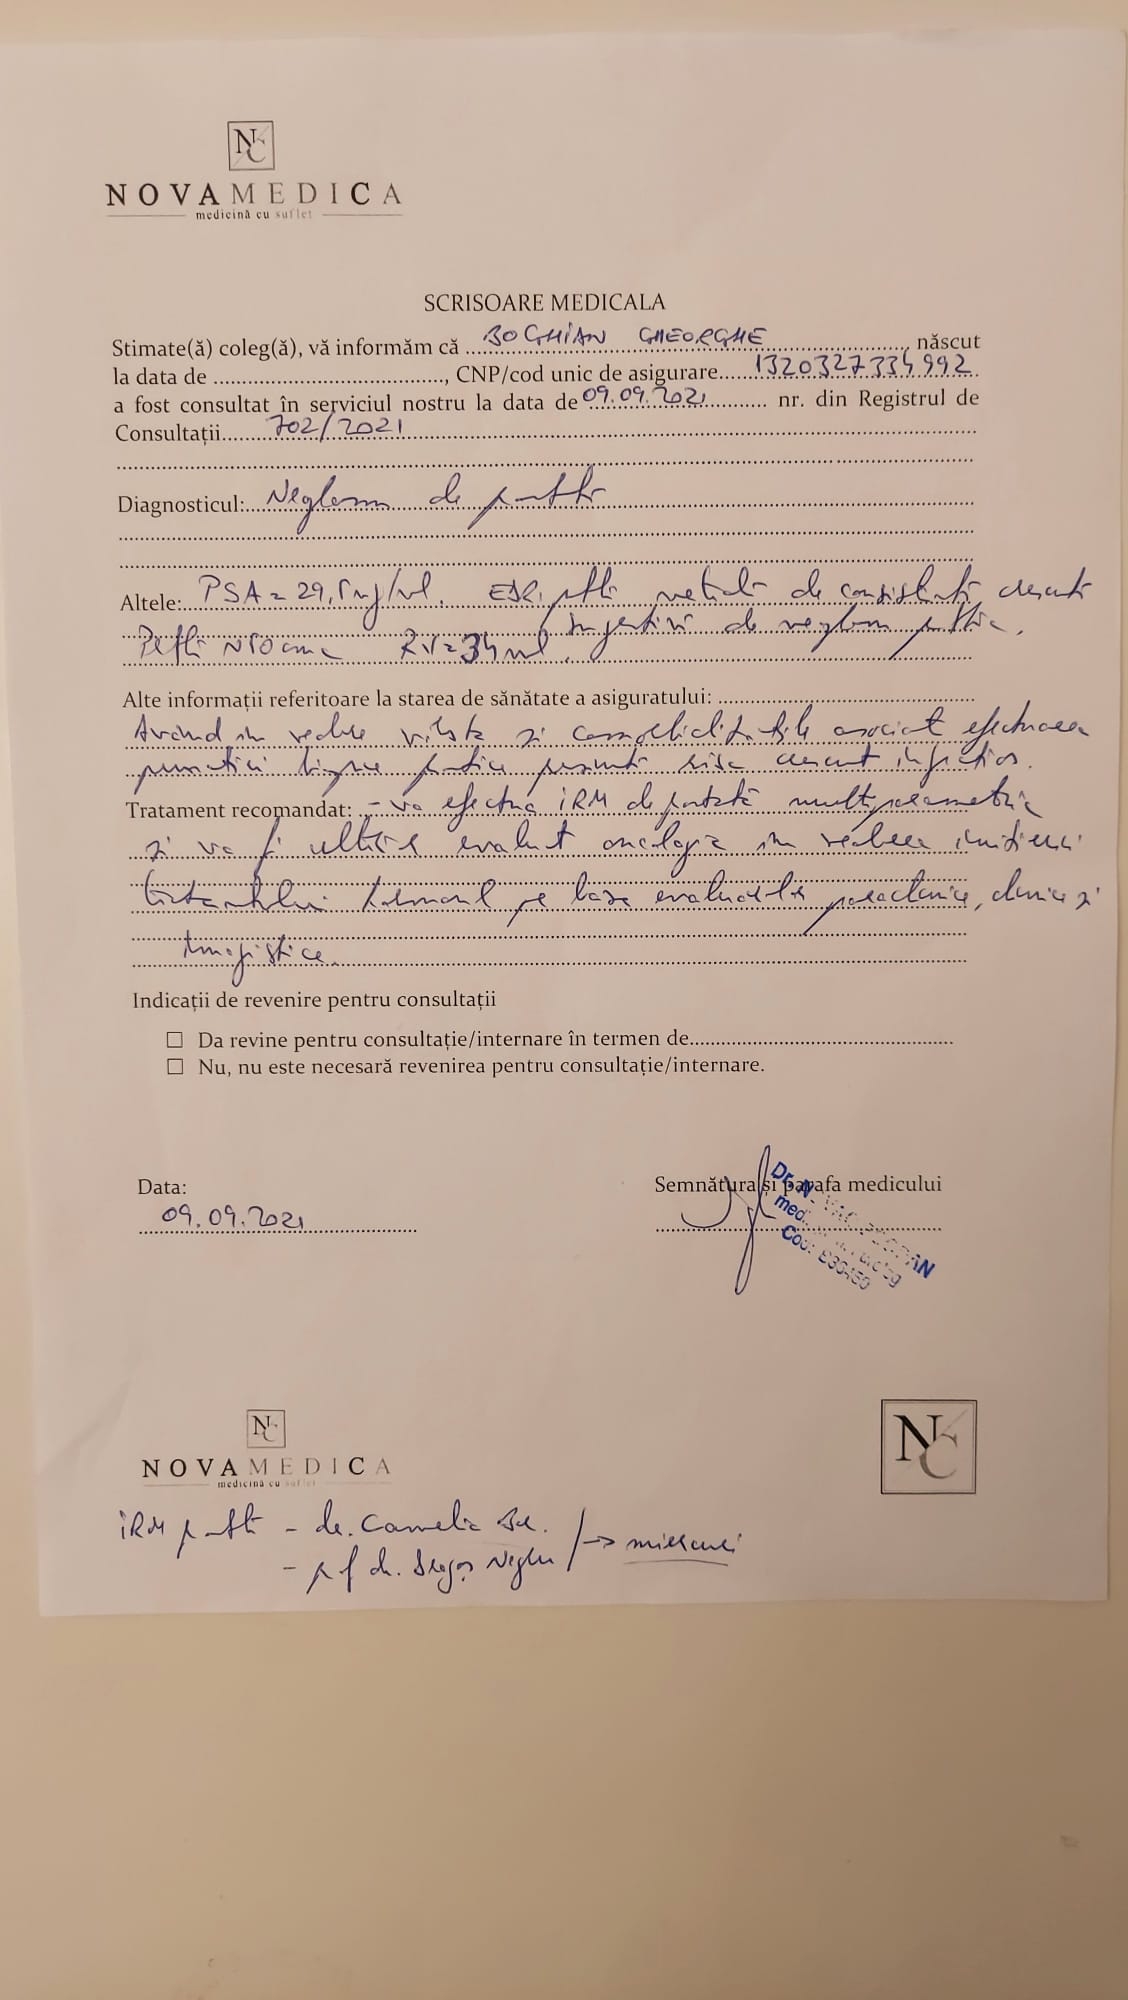 NC
NOVAMEDICA
medicină cu suflet
SCRISOARE MEDICALA
Stimate(ă) coleg(ă), vă informăm că BOGHIAN GHEORGHE, născut
la data de ........, CNP/cod unic de asigurare 1320327334992
a fost consultat în serviciul nostru la data de 09.09.2021 nr. din Registrul de
Consultații 702/2021
Diagnosticul: Neoplasm de
Altele: PSA = ng/ml. de consistență
RV=34ml, de neoplasm
Alte informații referitoare la starea de sănătate a asiguratului:
Având în vedere vârsta și comorbiditățile asociate efectuarea
puncției risc crescut infecțios.
Tratament recomandat: - va efectua IRM de prostată multiparametric
și va fi ulterior evaluat oncologic în vederea inițierii
tratamentului hormonal pe baza paraclinice, clinice și
imagistice.
Indicații de revenire pentru consultații
☐ Da revine pentru consultație/internare în termen de
☐ Nu, nu este necesară revenirea pentru consultație/internare.
Data:
09.09.2021
Semnătura și parafa medicului
Dr.
med.
Cod:
NC
NOVAMEDICA
medicină cu suflet
NC
IRM - dr. Camelia
- dr. Dragoș → miercuri